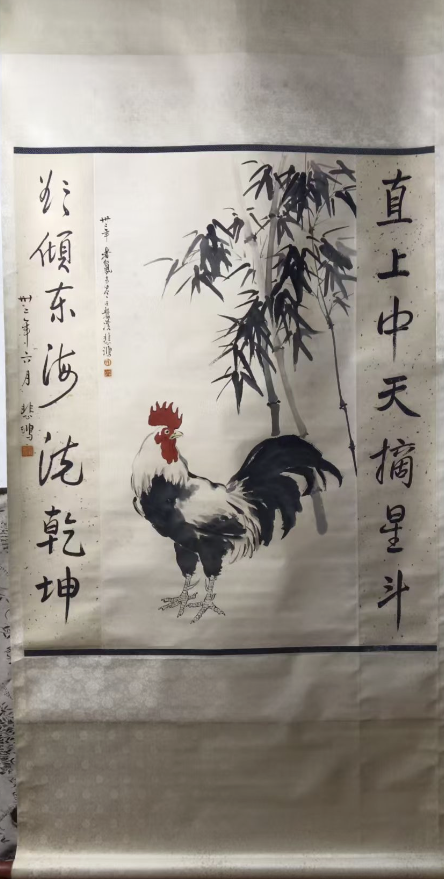 直上中天摘星斗
欲倾东海洗乾坤
卅二年六月
悲鴻
卅二年
悲鴻